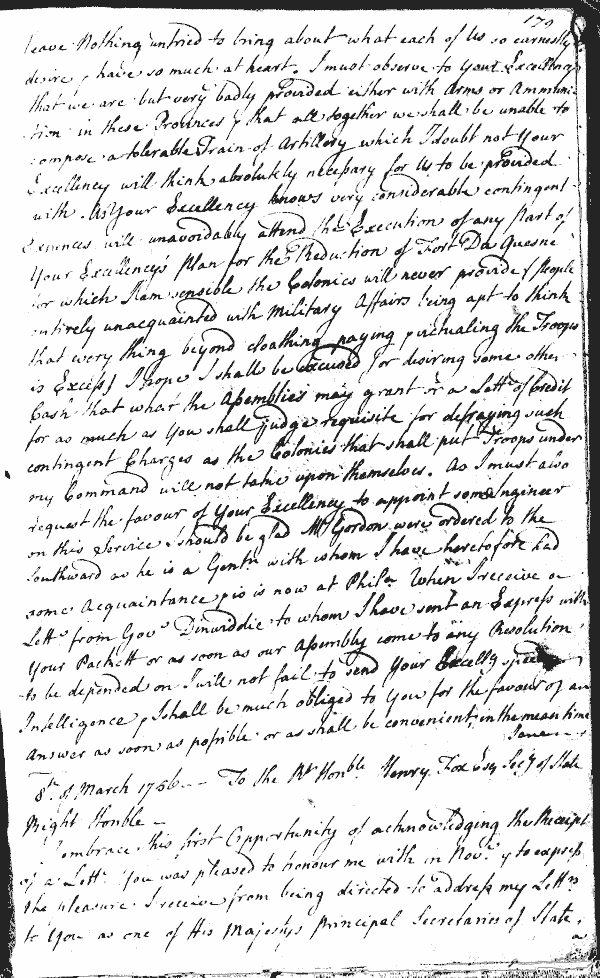 179
leave Nothing untried to bring about what each of Us so earnestly
desire & have so much at heart. I must observe to Your Excellency
that we are but very badly provided either with Arms or Ammuni-
tion in these Provinces & that all together we shall be unable to
compose a tolerable Train of Artillery which I doubt not Your
Excellency will think absolutely necessary for Us to be provided
with. As Your Excellency knows very considerable contingent
Expences will unavoidably attend the Execution of any Part of
Your Excellency's Plan for the Reduction of Fort Du Quesne
for which I am sensible the Colonies will never provide (People
entirely unacquainted with Military Affairs being apt to think
that every thing beyond cloathing, paying & victualing the Troops
is Excess) I hope I shall be excused for desiring some other
Cash that what the Assemblies may grant or a Lettr. of Credit
for as much as You shall judge requisite for defraying such
contingent Charges as the Colonies that shall put Troops under
my Command will not take upon themselves. As I must also
request the favour of Your Excellency to appoint some Ingineer
on this Service I should be glad Mr. Gordon were ordered to the
Southward as he is a Gentn with whom I have heretofore had
some Acquaintance & is now at Phila. When I receive a
Lettr. from Govr. Dinwiddie to whom I have sent an Express with
Your Packett or as soon as our Assembly come to any Resolution
to be depended on I will not fail to send Your Excelly
Intelligence & I shall be much obliged to You for the favour of an
Answer as soon as possible or as shall be convenient, in the mean time
I am
8th. of March 1756. -- To the Rt Honble Henry Fox Esq Secry of State
Right Honble --
I embrace this first Opportunity of acknowledging the Receipt
of a Lettr. You was pleased to honour me with in Novr. & to express
the pleasure I receive from being directed to address my Lettrs
to You as one of His Majestys Principal Secretaries of State,